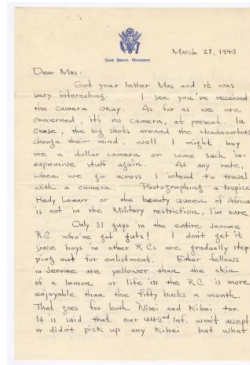 CAMP SHELBY, MISSISSIPPI
March 28, 1943
Dear Mas:
Got your letter Mas and it was
very interesting. I see you've received
the camera okay. As far as we are
concerned, it's no camera, at present. In
case, the big shots around the Headquarters
change their mind, well I might buy
me a dollar camera or some such in-
expensive stuff again. At any rate,
when we go across I intend to travel
with a camera. Photographing a tropical
Hedy Lamarr or the beauty queen of Africa
is not in the Military restriction, I'm sure.
Only 31 guys in the entire Jerome
R.C. who've got guts! I don't get it
since boys in other R.C.s are gradually step
ping out for enlistment. Either fellows
in Jerome are yellower than the skin
of a lemon or life in the R.C. is more
enjoyable than the fifty bucks a month.
That goes for both Nisei and Kibei too.
It is said that our 442nd Inf. won't accept
or didn't pick up any Kibei but what